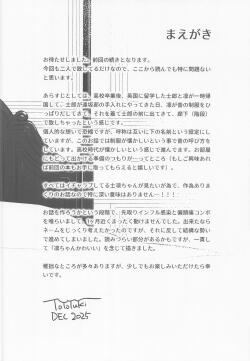 まえがき
お待たせしました。前回の続きとなります。
今回も二人で致してるだけなので、ここから読んでも特に問題ない
と思います。
あらすじとしては、高校卒業後、英国に留学した士郎と凛が一時帰
国して、士郎が遠坂邸の手入れにやってきた日、凛が昔の制服をひ
っぱりだしてきて、それを着て士郎の前に出てきて、廊下（階段）
で致しちゃったという感じです。
個人的な想いで恐縮ですが、呼称は互いに下の名前という設定に
していますが、このお話では制服が懐かしいという事で昔の呼び方を
しています。高校時代が懐かしいという感じで進んでます。お部屋
にもどって出かける準備のつもりが…ってところ（もしご興味あれ
ば前回の本もお手に取ってもらえると）からです。
すべてはイチャラブしてる士凛ちゃんが見たいが為で、作為ありま
くりのお話なので特に深い意味はありません…！！
お話を作ろうかという段階で、先取りインフル感染と偏頭痛コンボ
を喰らいまして1ヶ月近くまったく動けませんでした。出来たなら
ネームをじっくり考えたかったのですが、それに反して結構な勢い
で進めてしまいました。読みづらい部分があるかもですが、一貫し
て「凛ちゃんかわいい」を念じて描きました。
稚拙なところが多々ありますが、少しでもお楽しみいただけたら幸
いです。
TOTOTUKI
DEC 2025